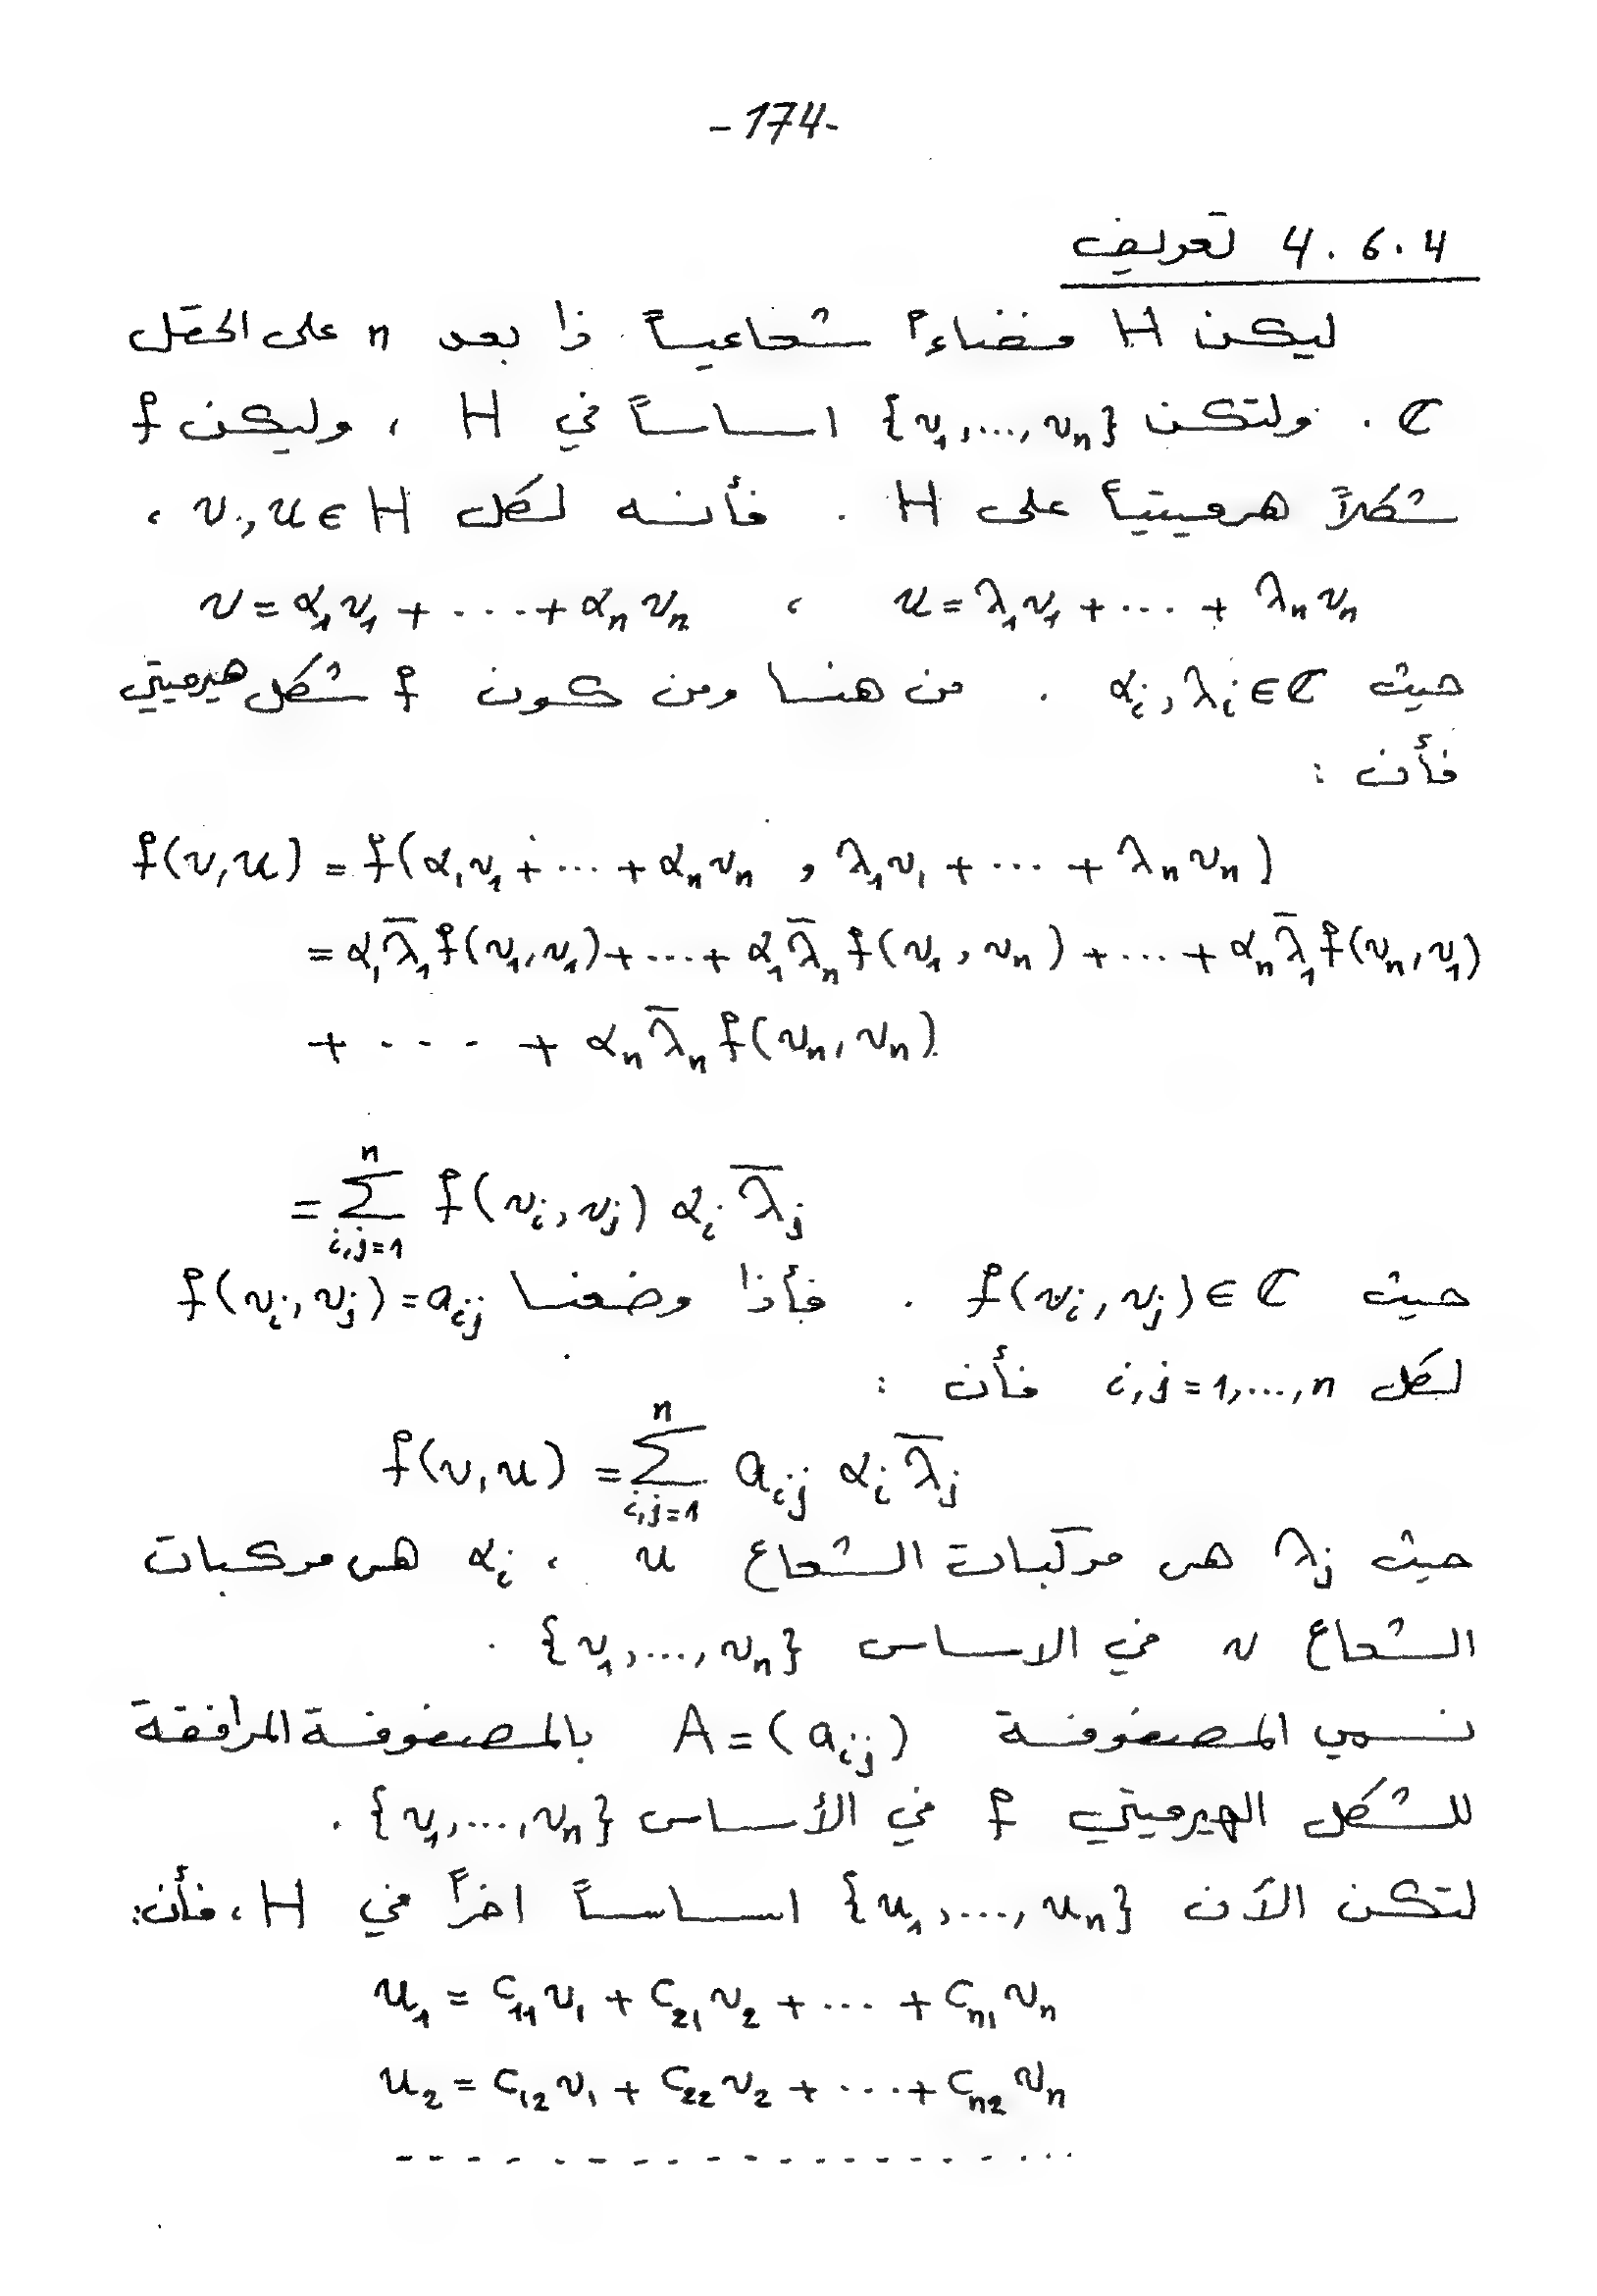 -174-
4.6.4 تعريف
ليكن H فضاءً شعاعياً ذا بعد n على الحقل
C . ولتكن {v₁,...,vₙ} اساساً في H ، وليكن f
شكلاً هرميتياً على H . فأنه لكل v,u∈H ،
v=α₁v₁+...+αₙvₙ ، u=λ₁v₁+...+λₙvₙ
حيث αᵢ,λᵢ∈C . من هنا ومن كون f شكل هيرميتي
فأن :
f(v,u)=f(α₁v₁+...+αₙvₙ , λ₁v₁+...+λₙvₙ)
=α₁λ̄₁f(v₁,v₁)+...+α₁λ̄ₙf(v₁,vₙ)+...+αₙλ̄₁f(vₙ,v₁)
+ .... + αₙλ̄ₙf(vₙ,vₙ)
=∑ⁿᵢ,ⱼ₌₁ f(vᵢ,vⱼ) αᵢ λ̄ⱼ
حيث f(vᵢ,vⱼ)∈C . فأذا وضعنا f(vᵢ,vⱼ)=aᵢⱼ
لكل i,j=1,...,n فأن :
f(v,u)=∑ⁿᵢ,ⱼ₌₁ aᵢⱼ αᵢ λ̄ⱼ
حيث λⱼ هي مركبات الشعاع u ، αᵢ هي مركبات
الشعاع v في الاساس {v₁,...,vₙ} .
نسمي المصفوفة A=(aᵢⱼ) بالمصفوفة المرافقة
للشكل الهيرميتي f في الأساس {v₁,...,vₙ} .
لتكن الآن {u₁,...,uₙ} اساساً اخراً في H ، فأن:
u₁ = c₁₁v₁ + c₂₁v₂ + ... + cₙ₁vₙ
u₂ = c₁₂v₁ + c₂₂v₂ + ... + cₙ₂vₙ
- - - - - - - - - - - - - - - - - - - -